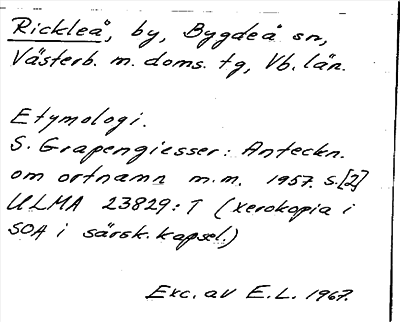 Rickleå, by, Bygdeå sn,
Västerb. m. doms. tg, Vb. län.
Etymologi.
S. Grapengiesser: Anteckn.
om ortnamn m.m. 1957. s.[2]
ULMA 23829:T (xerokopia i
SOA i särsk. kapsel.)
Exc. av E.L. 1967.